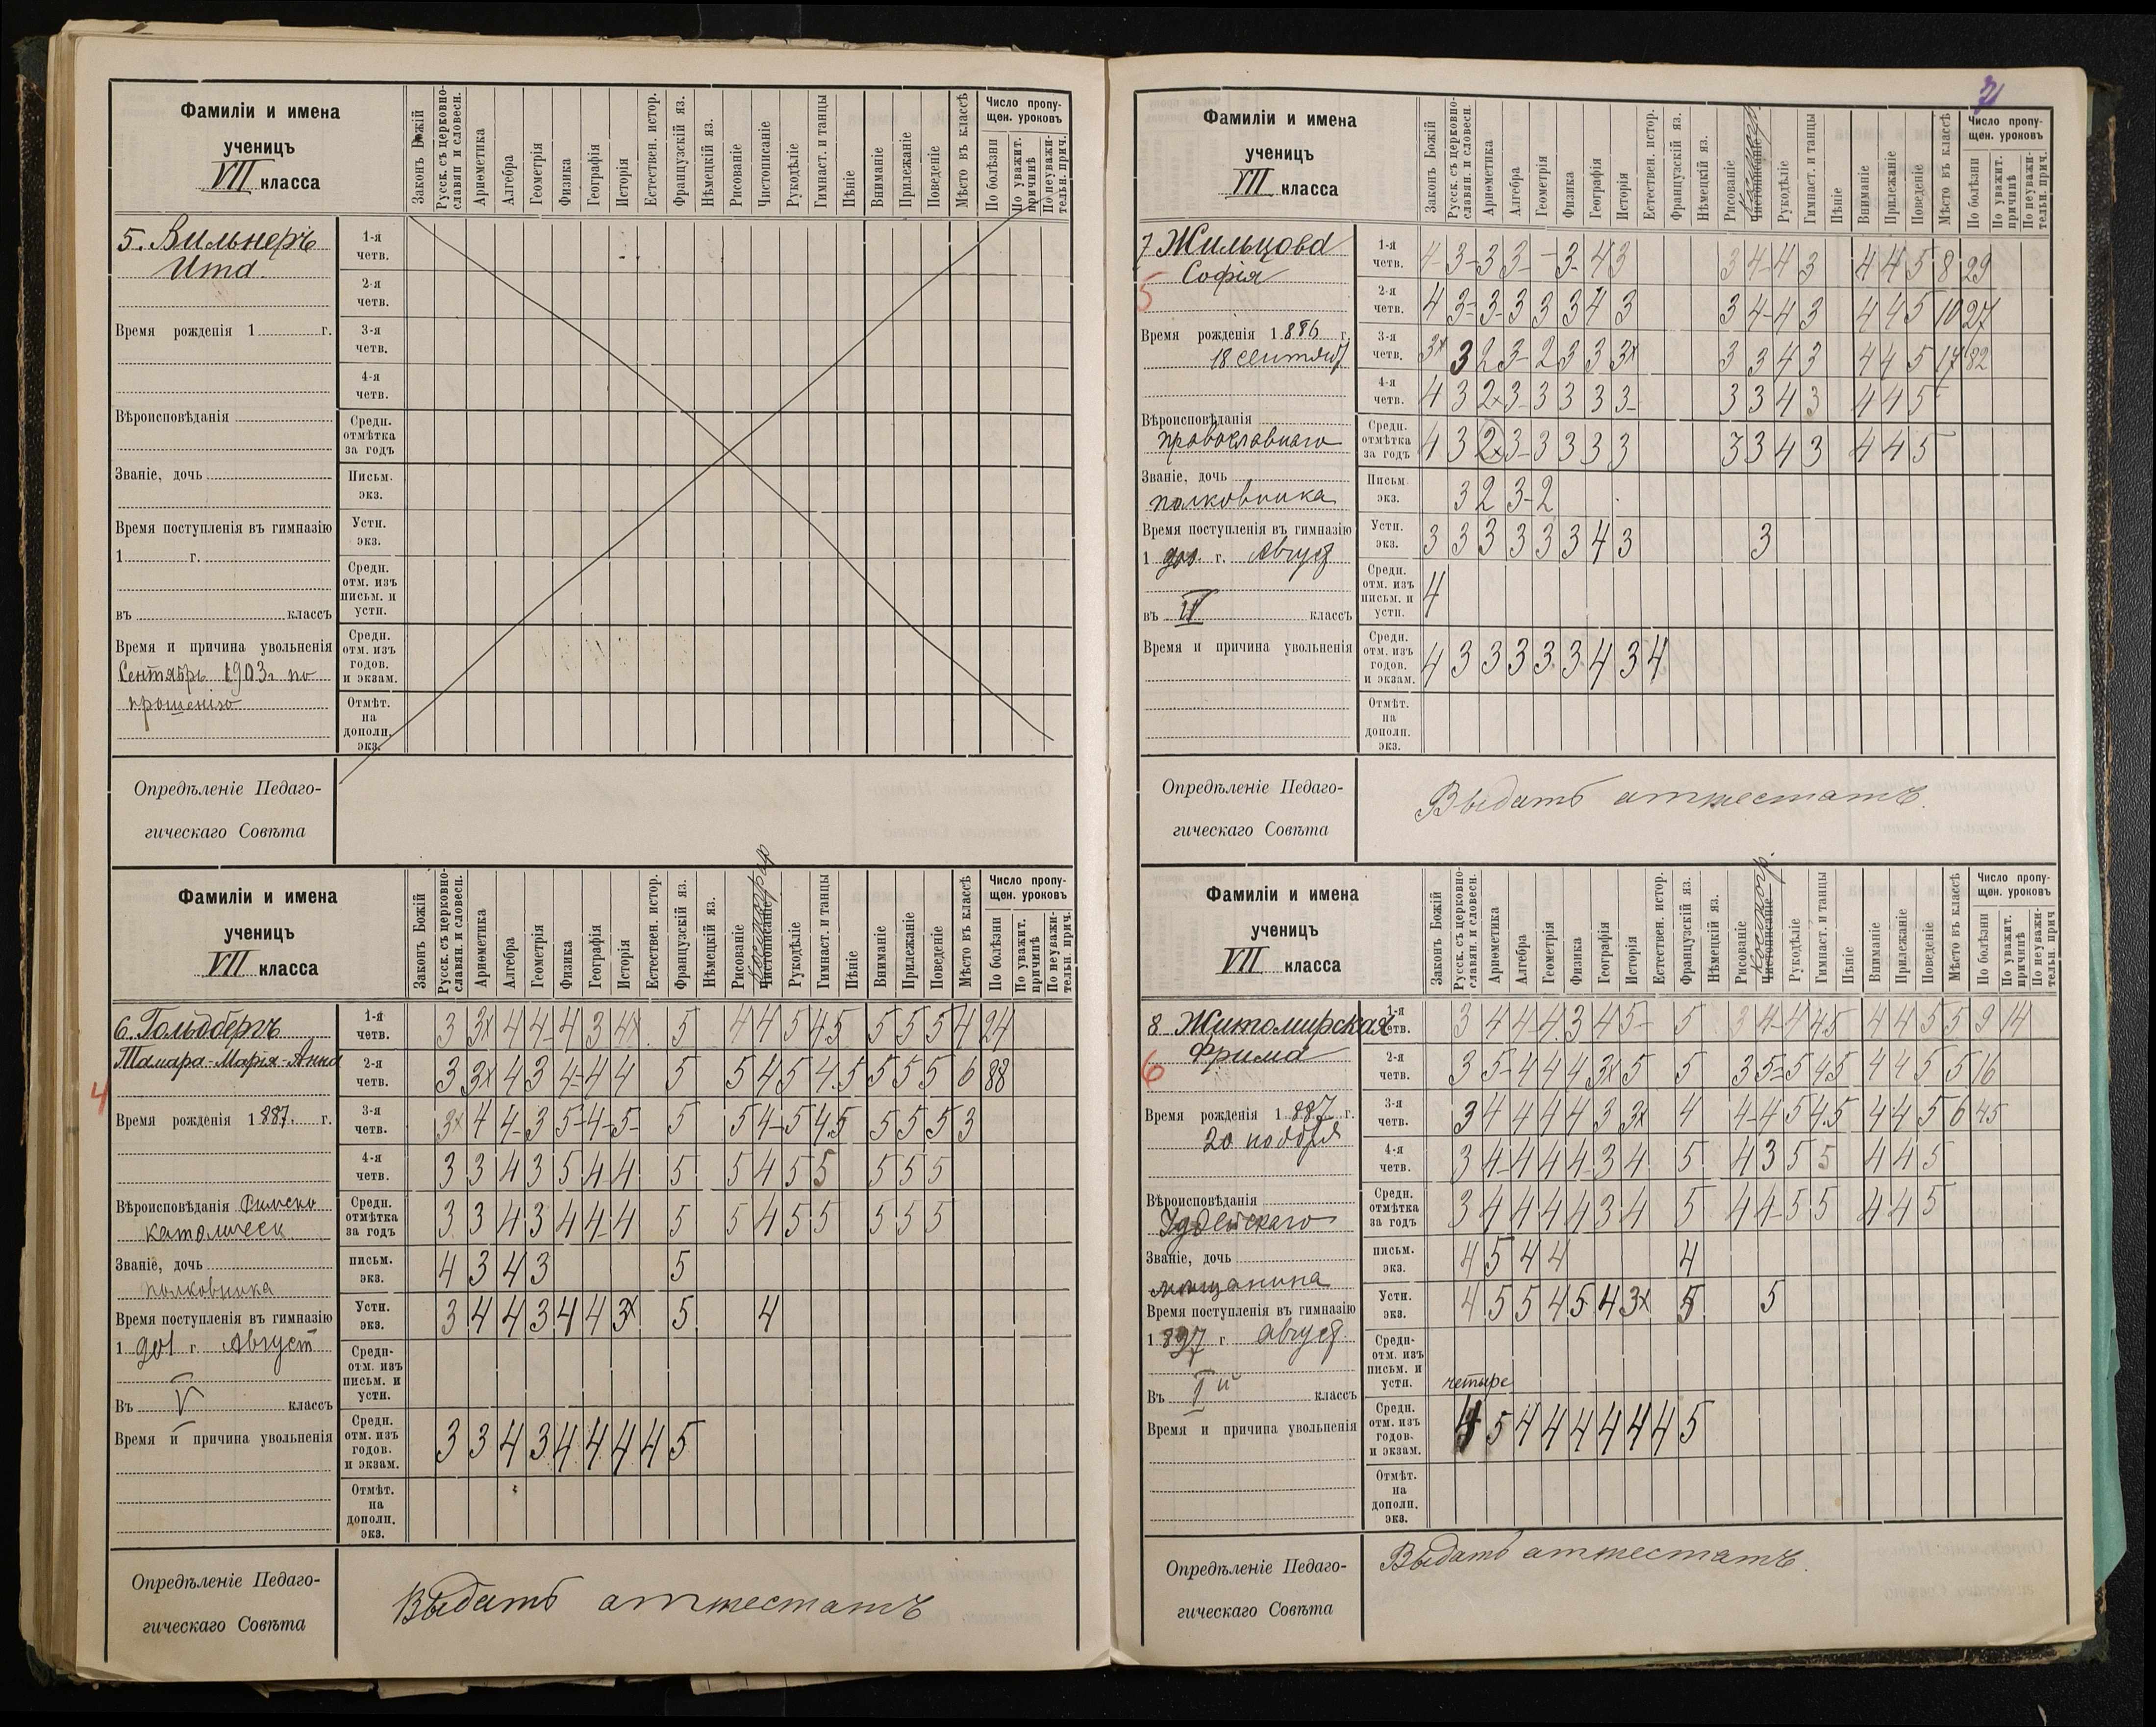 Фамиліи и имена
ученицъ
VII класса
Законъ Божій
Русск. съ церковно-славян и словесн.
Ариѳметика
Алгебра
Геометрія
Физика
Географія
Исторія
Естествен. истор.
Французскій яз.
Нѣмецкій яз.
Рисованіе
Чистописаніе
Рукодѣліе
Гимнаст. и танцы
Пѣніе
Вниманіе
Прилежаніе
Поведеніе
Мѣсто въ классѣ
Число пропу-
щен. уроковъ
По болѣзни
По уважит. причинѣ
По неуважи-тельн. прич.
5. Вильнеръ
Ита
1-я четв.
2-я четв.
Время рожденія 1 г.
3-я четв.
4-я четв.
Вѣроисповѣданія
Средн. отмѣтка за годъ
Званіе, дочь
Письм. экз.
Время поступленія въ гимназію
1 г.
Устн. экз.
Средн. отм. изъ письм. и устн.
въ классъ
Время и причина увольненія
Сентябрь 1903г по
прошенію
Средн. отм. изъ годов. и экзам.
Отмѣт. на дополн. экз.
Опредѣленіе Педаго-
гическаго Совѣта
Фамиліи и имена
ученицъ
VII класса
Законъ Божій
Русск. съ церковно-славян. и словесн.
Ариѳметика
Алгебра
Геометрія
Физика
Географія
Исторія
Естествен. истор.
Французскій яз.
Нѣмецкій яз.
Рисованіе
Чистописаніе
Рукодѣліе
Гимнаст. и танцы
Пѣніе
Вниманіе
Прилежаніе
Поведеніе
Мѣсто въ классѣ
Число пропу-
щен. уроковъ
По болѣзни
По уважит. причинѣ
По неуважи-тельн. прич.
6. Гольдбергъ
Тамара-Марія-Анна
4
1-я четв. 3 3х 4 4 4 3 4х 5 4 4 5 4.5 5 5 5 4 24
2-я четв. 3 3х 4 3 4 4 4 5 5 4 5 4.5 5 5 5 6 88
Время рожденія 1887. г.
3-я четв. 3х 4 4 3 5 4 5 5 5 4 5 4.5 5 5 5 3
4-я четв. 3 3 4 3 5 4 4 5 5 4 5 5 5 5 5
Вѣроисповѣданія Римско
католическ
Средн. отмѣтка за годъ 3 3 4 3 4 4 4 5 5 4 5 5 5 5 5
Званіе, дочь
полковника
письм. экз. 4 3 4 3 5
Время поступленія въ гимназію
1 901 г. Август
Устн. экз. 3 4 4 3 4 4 3х 5 4
Средн- отм. изъ письм. и устн.
Въ V классъ
Время и причина увольненія
Средн. отм. изъ годов. и экзам. 3 3 4 3 4 4 4 4 5
Отмѣт. на дополн. экз.
Опредѣленіе Педаго-
гическаго Совѣта
Выдать аттестатъ
Фамиліи и имена
ученицъ
VII класса
Законъ Божій
Русск. съ церковно-славян. и словесн.
Ариѳметика
Алгебра
Геометрія
Физика
Географія
Исторія
Естествен. истор.
Французскій яз.
Нѣмецкій яз.
Рисованіе
Чистописаніе
Рукодѣліе
Гимнаст. и танцы
Пѣніе
Вниманіе
Прилежаніе
Поведеніе
Мѣсто въ классѣ
Число пропу-
щен. уроковъ
По болѣзни
По уважит. причинѣ
По неуважи-тельн. прич.
7 Жильцова
Софія
5
1-я четв. 4 3- 3 3- - 3- 4 3 3 4- 4 3 4 4 5 8 29
2-я четв. 4 3- 3- 3 3 3 4 3 3 4- 4 3 4 4 5 10 27
Время рожденія 1886 г.
18 сентяб
3-я четв. 3х 3 2 3- 2 3 3 3х 3 3 4 3 4 4 5 17 82
4-я четв. 4 3 2х 3- 3 3 3 3- 3 3 4 3 4 4 5
Вѣроисповѣданія
православнаго
Средн. отмѣтка за годъ 4 3 2х 3- 3 3 3 3 3 3 4 3 4 4 5
Званіе, дочь
полковника
Письм. экз. 3 2 3- 2
Время поступленія въ гимназію
Устн. экз. 3 3 3 3 3 3 4 3 3
1 г. Август
Средн. отм. изъ письм. и устн. 4
въ классъ
Время и причина увольненія
Средн. отм. изъ годов. и экзам. 4 3 3 3 3 3 4 3 4
Отмѣт. на дополн. экз.
Опредѣленіе Педаго-
гическаго Совѣта
Выдать аттестатъ.
Фамиліи и имена
ученицъ
VII класса
Законъ Божій
Русск. съ церковно-славян. и словесн.
Ариѳметика
Алгебра
Геометрія
Физика
Географія
Исторія
Естествен. истор.
Французскій яз.
Нѣмецкій яз.
Рисованіе
Чистописаніе
космогр.
Рукодѣліе
Гимнаст. и танцы
Пѣніе
Вниманіе
Прилежаніе
Поведеніе
Мѣсто въ классѣ
Число пропу-
щен. уроковъ
По болѣзни
По уважит. причинѣ
По неуважи-тельн. прич
8 Житомирская
Фрима
6
1-я четв. 3 4 4 4 3 4 5- 5 3 4- 4 4.5 4 4 5 5 9 14
2-я четв. 3 5- 4 4 4 3х 5 5 3 5- 5 4.5 4 4 5 5 16
Время рожденія 1887 г.
20 ноября
3-я четв. 3 4 4 4 4 3 3х 4 4- 4 5 4.5 4 4 5 6 45
4-я четв. 3 4 4 4 4 3 4 5 4 3 5 5 4 4 5
Вѣроисповѣданія
Іудейскаго
Средн. отмѣтка за годъ 3 4 4 4 4 3 4 5 4 4- 5 5 4 4 5
Званіе, дочь
мѣщанина
письм. экз. 4 5 4 4 4
Время поступленія въ гимназію
1 897 г август.
Устн. экз. 4 5 5 4 5 4 3х 5 5
Средн- отм. изъ письм. и устн. четыре
Въ I й классъ
Время и причина увольненія
Средн. отм. изъ годов. и экзам. 4 5 4 4 4 4 4 4 5
Отмѣт. на дополн. экз.
Опредѣленіе Педаго-
гическаго Совѣта
Выдать аттестатъ.